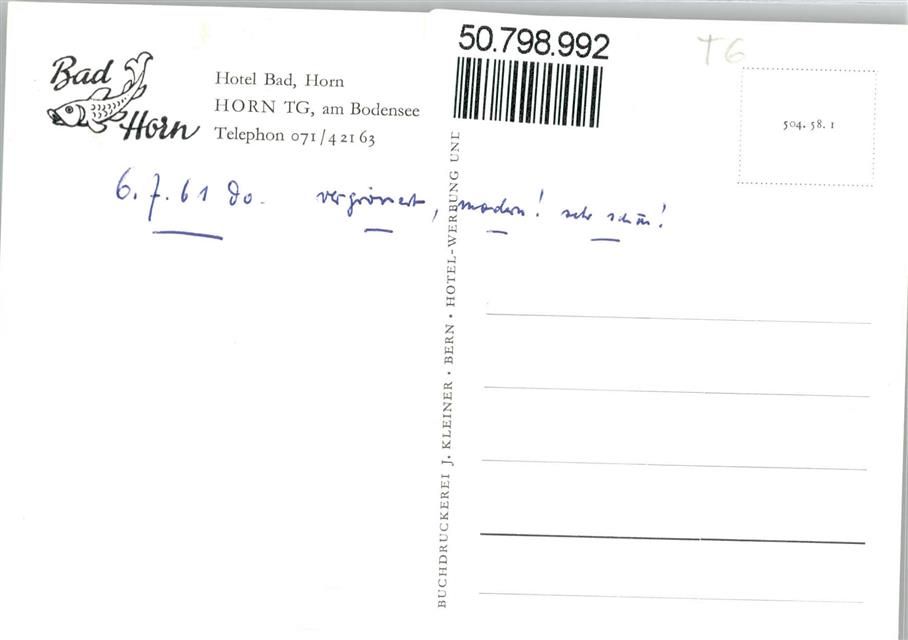 Bad
Horn
Hotel Bad, Horn
HORN TG, am Bodensee
Telephon 071/4 21 63
50.798.992
TG
504.58.1
6.7.61 Do. modern! sehr schön!
BUCHDRUCKEREI J. KLEINER · BERN · HOTEL-WERBUNG UND